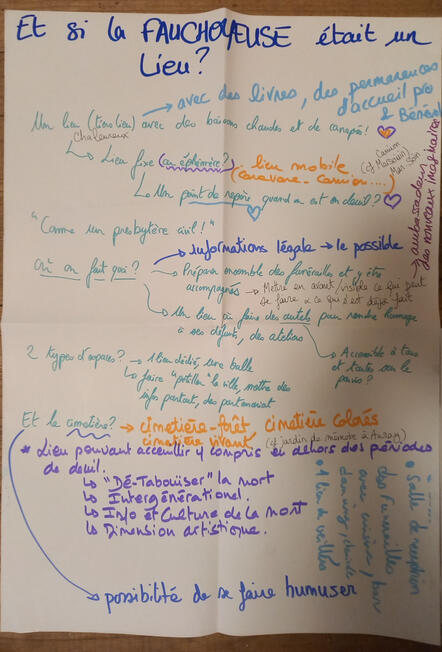 Et si la FAUCHOYEUSE était un
Lieu?
→ avec des livres, des permanences
d'accueil pro
& Bénév
Un lieu (tiers lieu) avec des boissons chaudes et de canapés!
Chaleureux
↳ Lieu fixe (ou éphémère?)
lieu mobile
(caravane - camion....)
Camion
(cf
Mar son
↳ Un point de repère quand on est en deuil?
ambassadeurs
des nouveaux imaginaires
"Comme un presbytère civil!"
Informations légale → le possible
Où on fait quoi?
→ Préparer ensemble des funérailles et y être
accompagnés
→ Mettre en avant/visible ce qui peut
se faire & ce qui s'est déjà fait
→ Un lieu où faire des autels pour rendre hommage
à ses défunts, des ateliers
→ Accessible à tous
et toutes sur le
parvis?
2 types d'espaces?
→ 1 lieu dédié, une bulle
↳ faire "pétiller" la ville, mettre des
info partout, des partenariat
Et le cimetière?
→ cimetière-forêt cimetière colorés
cimetière vivant
(cf jardin de mémoire à Auray)
* Lieu pouvant accueillir y compris en dehors des périodes
de deuil.
↳ "Dé-Tabouïser" la mort
↳ Intergénérationel.
↳ Info et Culture de la mort
↳ Dimension artistique.
• Salle de réception
des funérailles
avec cuisine, bar
dancing, chaude
• 1 lieu de veillée
→ possibilité de se faire humuser